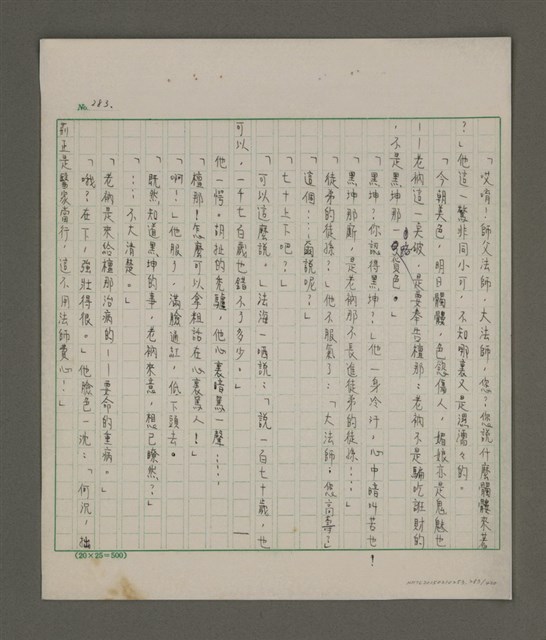 No. 283.
「哎唷！師父法師，大法師，您？您說什麼髑髏來著
？」他這一驚非同小可，不知哪裏又是濕濡々的。
「今朝美色，明日髑髏，色慾傷人，媚娘亦是鬼魅也
——老衲這一莫破，是要奉告檀那：老衲不是騙吃誑財的
，不是黑坤那一路貨色。」
「黑坤？你認得黑坤？」他一身冷汗，心中暗叫苦也！
「黑坤那廝，是老衲那不長進徒弟的徒孫……」
「徒弟的徒孫？」他不服氣了：「大法師：您高壽？」
「這個……說呢？」
「七十上下吧？」
「可以這麼說。」法海一哂說：「說一百七十歲，也
可以，一千七百歲也錯不了多少。」
他一愕。胡扯的禿驢，他心裏暗罵一聲……
「檀那！怎麼可以拿粗話在心裏罵人！」
「啊！」他服了，滿臉通紅，低下頭去。
「既然知道黑坤的事，老衲來意，想已瞭然？」
「……不大清楚。」
「老衲是來給檀那治病的——要命的重病。」
「哦？在下，強壯得很。」他臉色一沈：「何況，
葯正是醫家當行，這不用法師費心！」
(20×25=500)